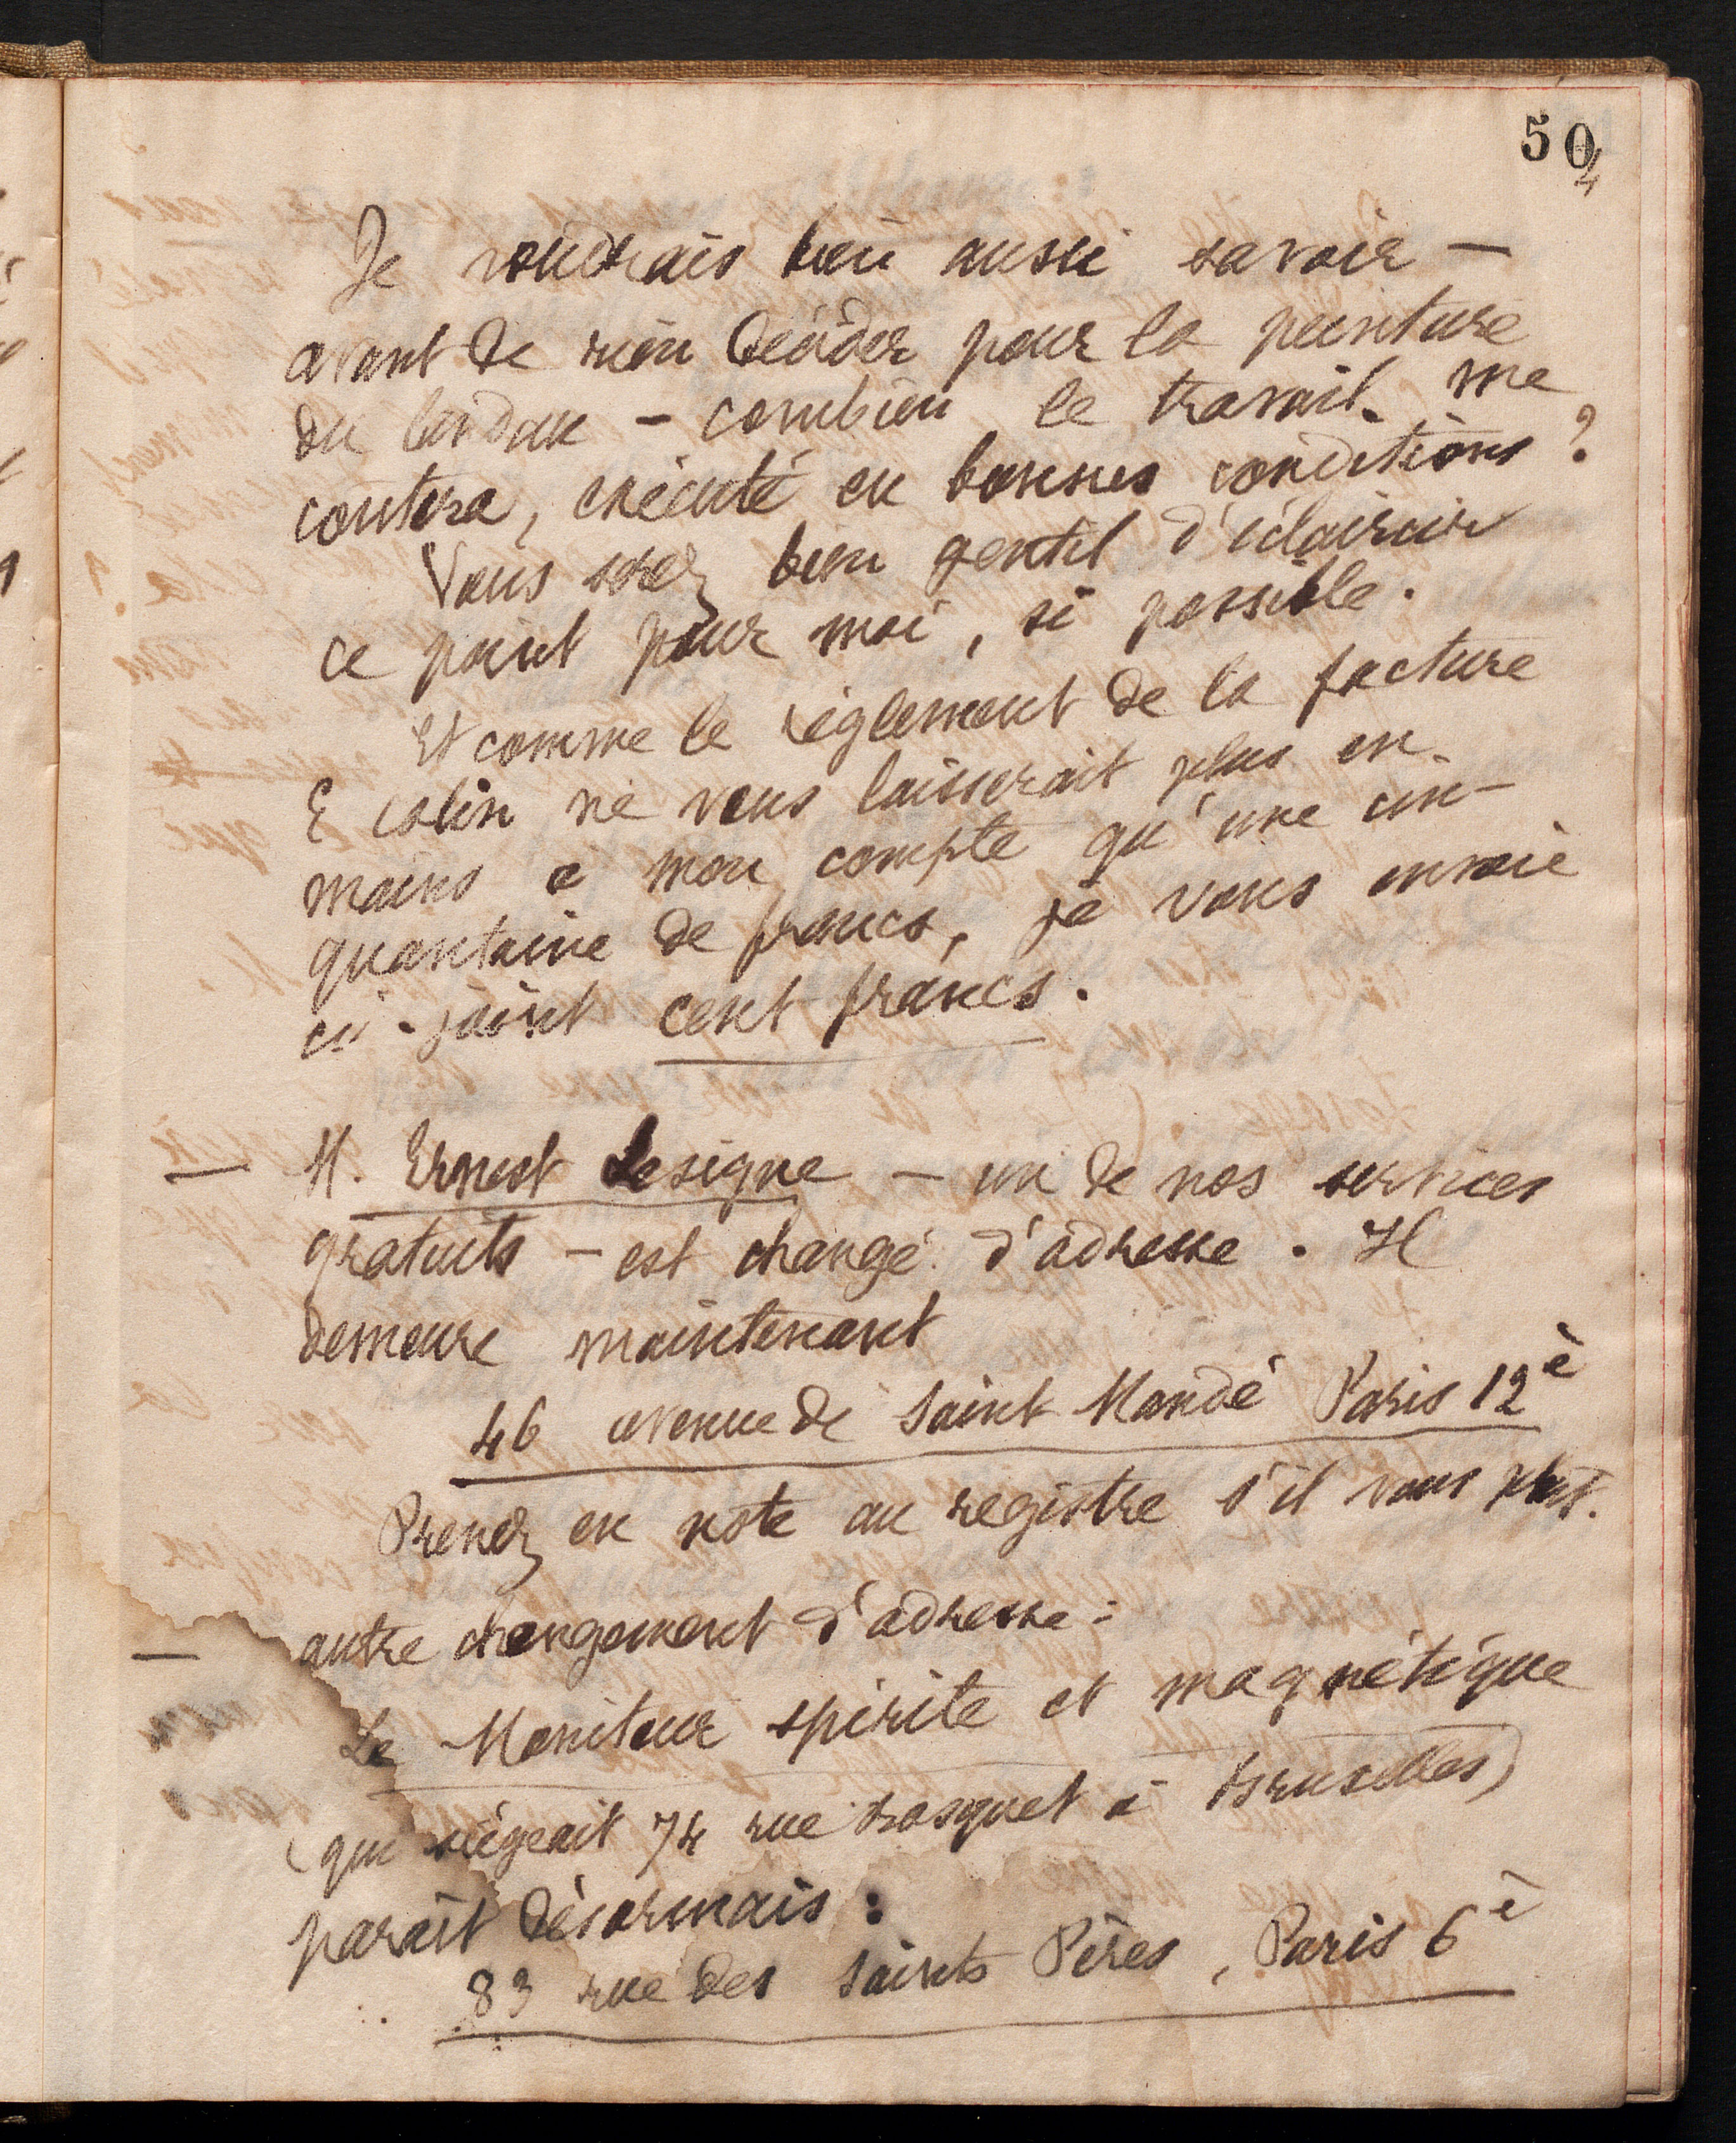 504
Je voudrais bien aussi savoir —
avant de rien décider pour la peinture
du landau — combien le travail me
coutera, exécuté en bonnes conditions ?
Vous serez bien gentil d'éclaircir
ce point pour moi, si possible.
Et comme le règlement de la facture
E Colin ne vous laisserait plus en
mains à mon compte qu'une cin-
quantaine de francs, je vous envoie
ci-joint cent francs.
— M. Ernest Lesigne — un de nos services
gratuits — est changé d'adresse. Il
demeure maintenant
46 avenue de Saint Mandé Paris 12è
Prenez en note au registre s'il vous plait.
— autre changement d'adresse :
Le Moniteur spirite et magnétique
(qui siégeait 74 rue Bosquet à Bruxelles)
parait désormais :
83 rue des Saints Pères, Paris 6è